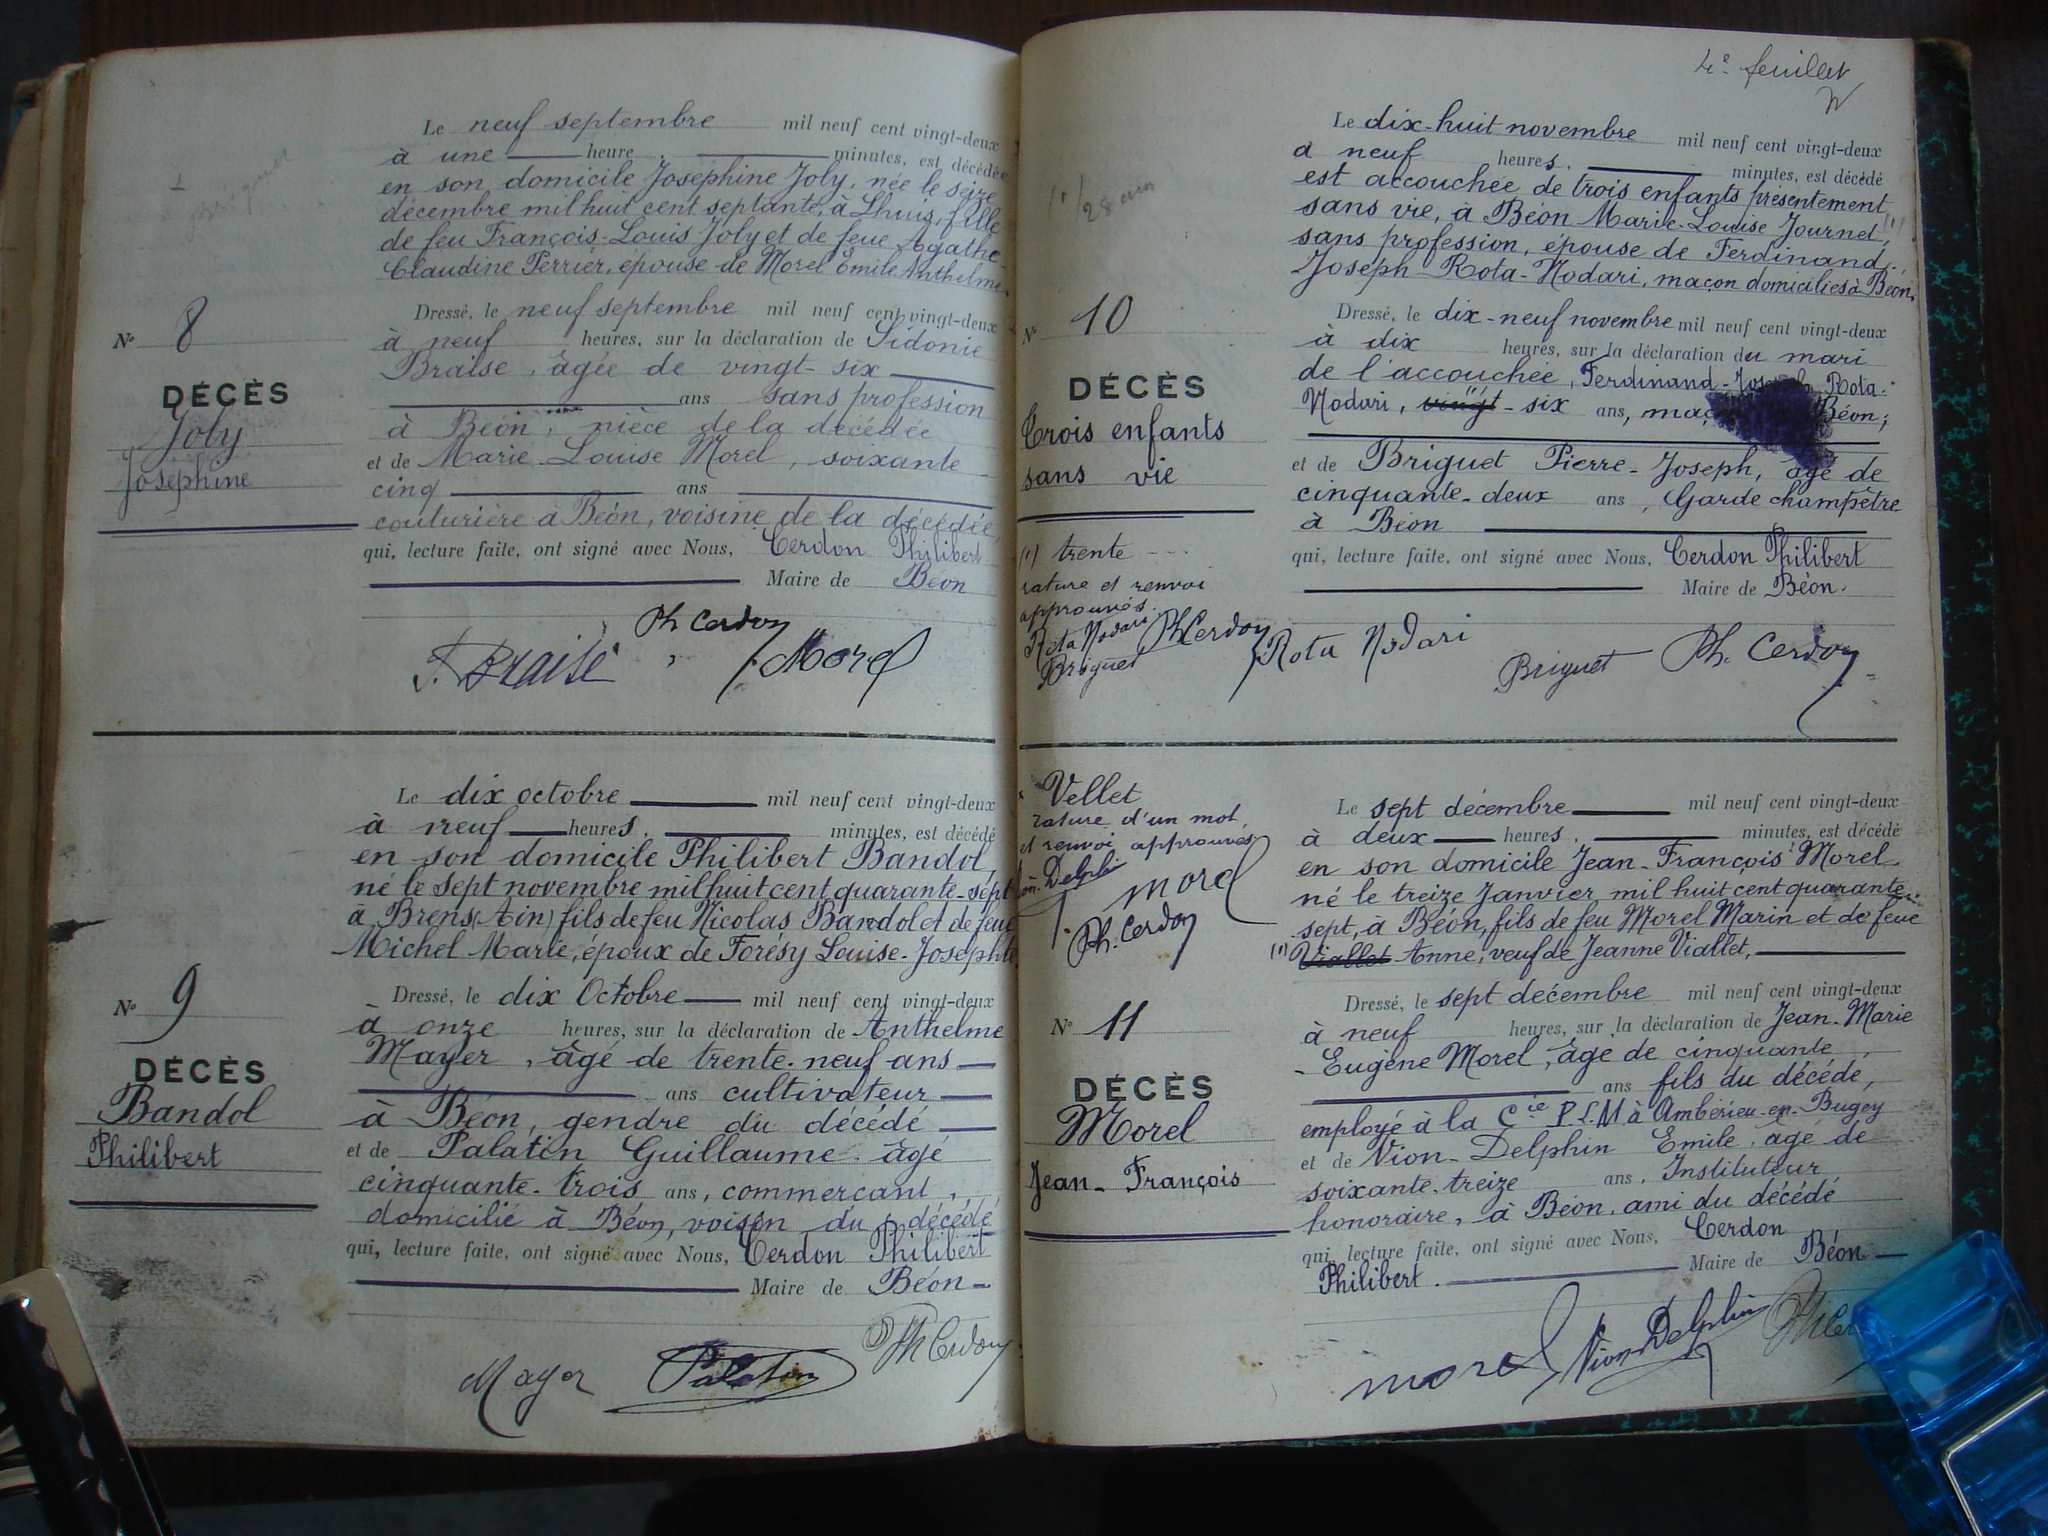 Le neuf septembre mil neuf cent vingt-deux
à une heure, minutes, est décédée
en son domicile Joséphine Joly, née le seize
décembre mil huit cent septante, à Lhuis, fille
de feu François-Louis Joly et de feue Agathe-
Claudine Perrier, épouse de Morel Émile Anthelme
Dressé, le neuf septembre mil neuf cent vingt-deux
à neuf heures, sur la déclaration de Sidonie
Braise, âgée de vingt-six
ans sans profession
à Béon, nièce de la décédée
et de Marie-Louise Morel, soixante
cinq ans
couturière à Béon, voisine de la décédée,
qui, lecture faite, ont signé avec Nous, Cerdon Philibert
Maire de Béon
N° 8
DÉCÈS
Joly
Joséphine
Ph Cerdon
S. Braise Morel
Le dix octobre mil neuf cent vingt-deux
à neuf heures, minutes, est décédé
en son domicile Philibert Bandol,
né le sept novembre mil huit cent quarante-sept
à Brens (Ain) fils de feu Nicolas Bandol et de feue
Michel Marie, époux de Forésy Louise-Josephte
Dressé, le dix Octobre mil neuf cent vingt-deux
à onze heures, sur la déclaration de Anthelme
Mayer, âgé de trente-neuf ans
ans cultivateur
à Béon, gendre du décédé
et de Palatin Guillaume âgé
cinquante-trois ans, commerçant,
domicilié à Béon, voisin du décédé
qui, lecture faite, ont signé avec Nous, Cerdon Philibert
Maire de Béon
N° 9
DÉCÈS
Bandol
Philibert
Ph Cerdon
Mayer Palatin
4e feuillet
Le dix-huit novembre mil neuf cent vingt-deux
à neuf heures, minutes, est décédé
est accouchée de trois enfants présentement
sans vie, à Béon Marie-Louise Journet, (1)
sans profession, épouse de Ferdinand
Joseph Rota-Nodari, maçon domiciliés à Béon,
Dressé, le dix-neuf novembre mil neuf cent vingt-deux
à dix heures, sur la déclaration du mari
de l'accouchée, Ferdinand-Joseph Rota-
Nodari, vingt-six ans, maç Béon;
et de Briguet Pierre-Joseph, âgé de
cinquante-deux ans, Garde champêtre
à Béon
qui, lecture faite, ont signé avec Nous, Cerdon Philibert
Maire de Béon.
N° 10
DÉCÈS
Trois enfants
sans vie
(1) trente
rature et renvoi
approuvés.
Rota Nodari Ph Cerdon
Briguet
Rota Nodari Briguet Ph. Cerdon
Vellet
rature d'un mot,
et renvoi approuvés
Delphi
morel
Ph. Cerdon
Le sept décembre mil neuf cent vingt-deux
à deux heures, minutes, est décédé
en son domicile Jean-François Morel
né le treize Janvier mil huit cent quarante-
sept, à Béon, fils de feu Morel Marin et de feue
(1) Viallet Anne, veuf de Jeanne Viallet,
Dressé, le sept décembre mil neuf cent vingt-deux
à neuf heures, sur la déclaration de Jean-Marie
Eugène Morel, âgé de cinquante
ans fils du décédé,
employé à la Cie P.L.M à Ambérieu-en-Bugey
et de Vion-Delphin Emile, âgé de
soixante-treize ans, Instituteur
honoraire, à Béon, ami du décédé
qui, lecture faite, ont signé avec Nous, Cerdon
Philibert. Maire de Béon
N° 11
DÉCÈS
Morel
Jean-François
morel Vion Delphin Ph Cer